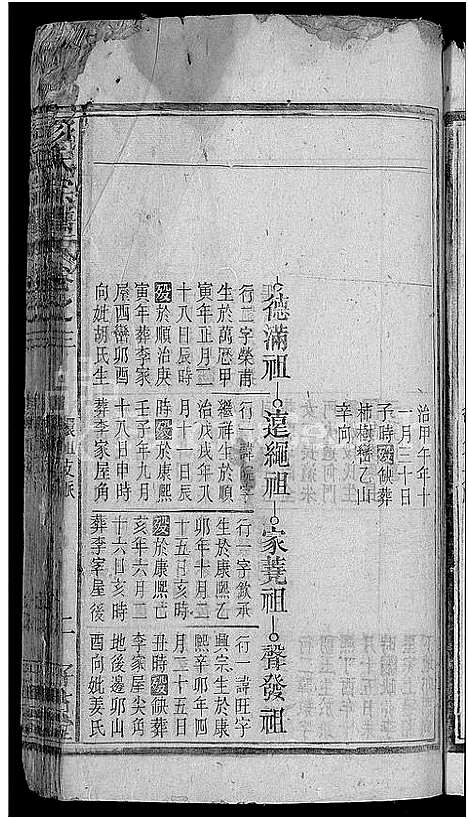 治甲午年十
一月三十日
子時歿缺葬
柿樹巒乙山
辛向
德滿祖
行二字榮甫
生於萬厯甲
寅年正月二
十八日辰時
歿於順治庚
寅年葬李家
屋酉巒卯酉
向妣胡氏生
遠繩祖
行一諱
繼祥生於順
治戊戌年八
月十一日辰
時歿於康熙
壬子年九月
十八日申時
葬李家屋角
家蕘祖
行一字欽承
生於康熙乙
卯年十月二
十五日亥時
歿於康熙己
亥年六月二
十六日亥時
葬李家屋後
聲發祖
行一諱旺字
興宗生於康
熙辛卯年四
月二十五日
丑時歿缺葬
李家屋尖角
地後邊卯山
酉向妣姜氏
氏宗譜 卷之三